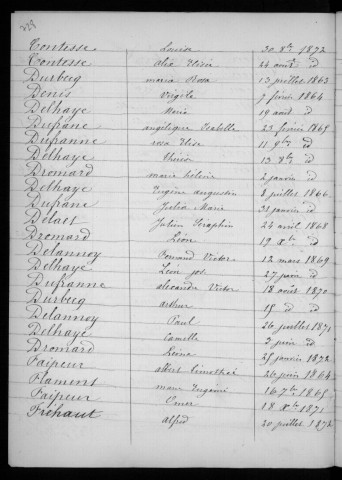 229
Contesse Louise 30 8bre 1872
Contesse alix Elisée 24 août d
Durbecq maria Rosa 13 juillet 1863
Denis Virgile 7 février 1864
Delhaye Maria 19 août d
Dufrane angélique Isabelle 23 février 1865
Dufranne rosa Elise 11 9bre d
Delhaye 13 8bre d
Dromard marie héloïse 2 janvier d
Delhaye Eugène augustin 8 juillet 1866
Dufrane Julia Marie 31 janvier d
Delaet Julien Séraphin 24 avril 1868
Dromard Léon 19 8bre d
Delannoy Fernand Victor 12 mars 1869
Delhaye Léon jph 27 juin d
Dufranne alexandre Victor 18 août 1870
Durbecq arthur 15 d d
Delannoy Paul 26 juillet 1871
Delhaye Camille 3 juin d
Dromard Reine 25 janvier 1872
Faipeur albert timothée 26 juin 1864
Flament marie Eugénie 16 7bre 1865
Faipeur Omer 18 8bre 1871
Fréhaut alfred 20 juillet 1872